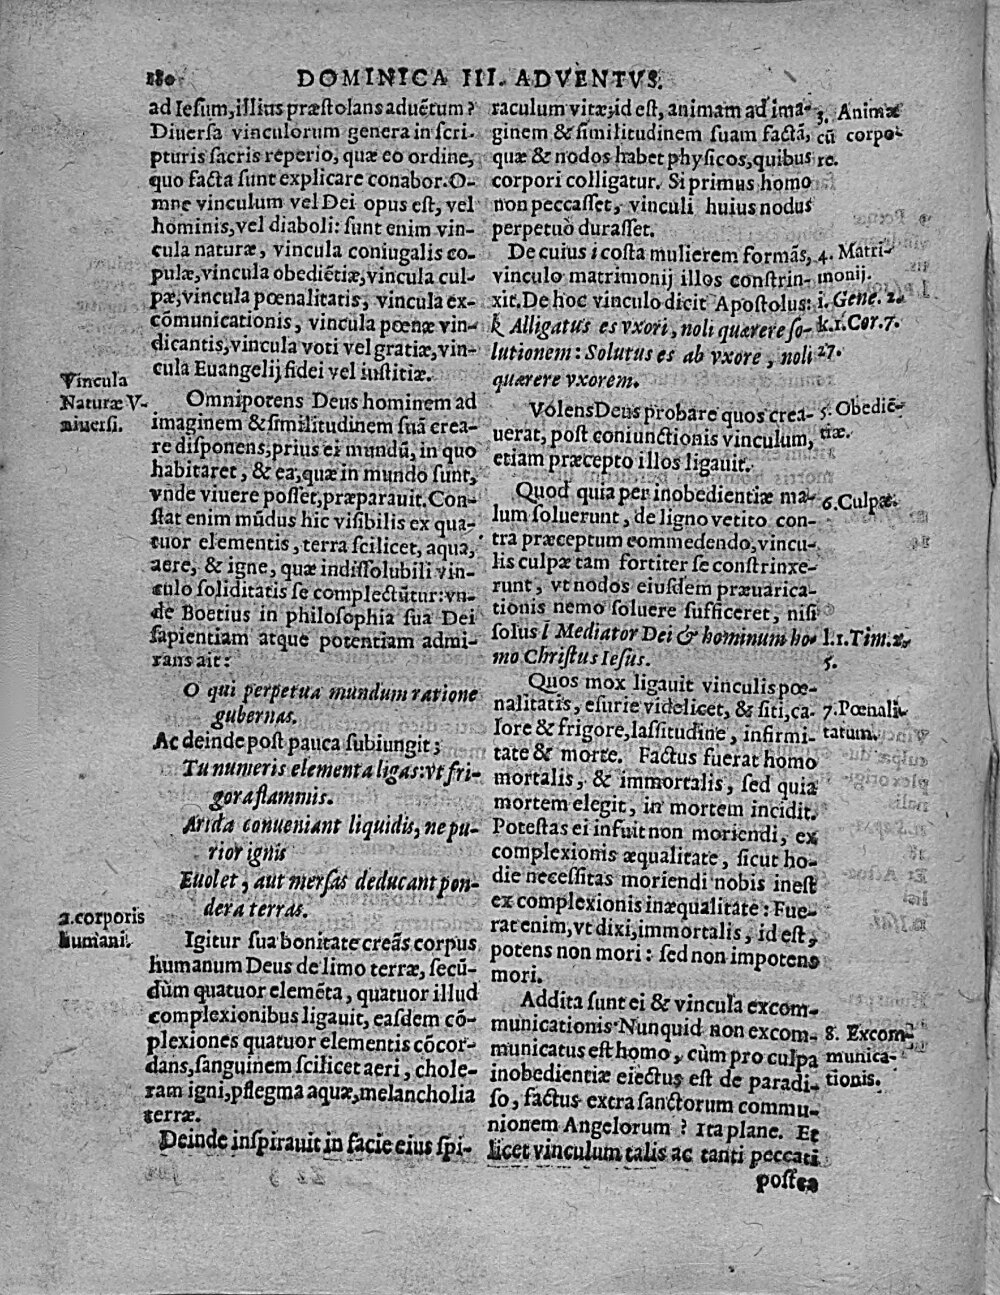 180 DOMINICA III. ADVENTVS.
ad Iesum, illius præstolans aduẽtum?
Diuersa vinculorum genera in scri-
pturis sacris reperio, quæ eo ordine,
quo facta sunt explicare conabor. O-
mne vinculum vel Dei opus est, vel
hominis, vel diaboli: sunt enim vin-
cula naturæ, vincula coniugalis co-
pulæ, vincula obediẽtiæ, vincula cul-
pæ, vincula pœnalitatis, vincula ex-
cõmunicationis, vincula pœnæ vin-
dicantis, vincula voti vel gratiæ, vin-
cula Euangelij fidei vel iustitiæ.
Vincula
Naturæ V-
niuersi.
Omnipotens Deus hominem ad
imaginem & similitudinem suã crea-
re disponens, prius ei mundũ, in quo
habitaret, & ea, quæ in mundo sunt,
vnde viuere posset, præparauit. Con-
stat enim mũdus hic visibilis ex qua-
tuor elementis, terra scilicet, aqua,
aere, & igne, quæ indissolubili vin-
culo soliditatis se complectũtur: vn-
de Boetius in philosophia sua Dei
sapientiam atque potentiam admi-
rans ait:
O qui perpetua mundum ratione
gubernas.
Ac deinde post pauca subiungit;
Tu numeris elementa ligas: vt fri-
gora flammis.
Arida conueniant liquidis, ne pu-
rior ignis
Euolet, aut mersas deducant pon-
dera terras.
2. corporis
humani.
Igitur sua bonitate creãs corpus
humanum Deus de limo terræ, secũ-
dùm quatuor elemẽta, quatuor illud
complexionibus ligauit, easdem cõ-
plexiones quatuor elementis cõcor-
dans, sanguinem scilicet aeri, chole-
ram igni, pflegma aquæ, melancholia
terræ.
Deinde inspirauit in facie eius spi-
raculum vitæ, id est, animam ad ima-
ginem & similitudinem suam factã,
quæ & nodos habet physicos, quibus
corpori colligatur. Si primus homo
non peccasset, vinculi huius nodus
perpetuò durasset.
3. Animæ
cũ corpo-
re.
De cuius i costa mulierem formãs,
vinculo matrimonij illos constrin-
xit. De hoc vinculo dicit Apostolus:
k Alligatus es vxori, noli quærere so-
lutionem: Solutus es ab vxore, noli
quærere vxorem.
4. Matri-
monij.
i. Gene. 2.
k. 1. Cor. 7.
27.
Volens Deus probare quos crea-
uerat, post coniunctionis vinculum,
etiam præcepto illos ligauit.
5. Obediẽ-
tiæ.
Quod quia per inobedientiæ ma-
lum soluerunt, de ligno vetito con-
tra præceptum commedendo, vincu-
lis culpæ tam fortiter se constrinxe-
runt, vt nodos eiusdem præuarica-
tionis nemo soluere sufficeret, nisi
solus l Mediator Dei & hominum ho-
mo Christus Iesus.
6. Culpæ.
l. 1. Tim. 2.
5.
Quos mox ligauit vinculis pœ-
nalitatis, esurie videlicet, & siti, ca-
lore & frigore, lassitudine, infirmi-
tate & morte. Factus fuerat homo
mortalis, & immortalis, sed quia
mortem elegit, in mortem incidit.
Potestas ei infuit non moriendi, ex
complexionis æqualitate, sicut ho-
die necessitas moriendi nobis inest
ex complexionis inæqualitate: Fue-
rat enim, vt dixi, immortalis, id est,
potens non mori: sed non impotens
mori.
7. Pœnali-
tatum.
Addita sunt ei & vincula excom-
municationis. Nunquid non excom-
municatus est homo, cùm pro culpa
inobedientiæ eiectus est de paradi-
so, factus extra sanctorum commu-
nionem Angelorum? Ita plane. Et
licet vinculum talis ac tanti peccati
8. Excom-
munica-
tionis.
postea